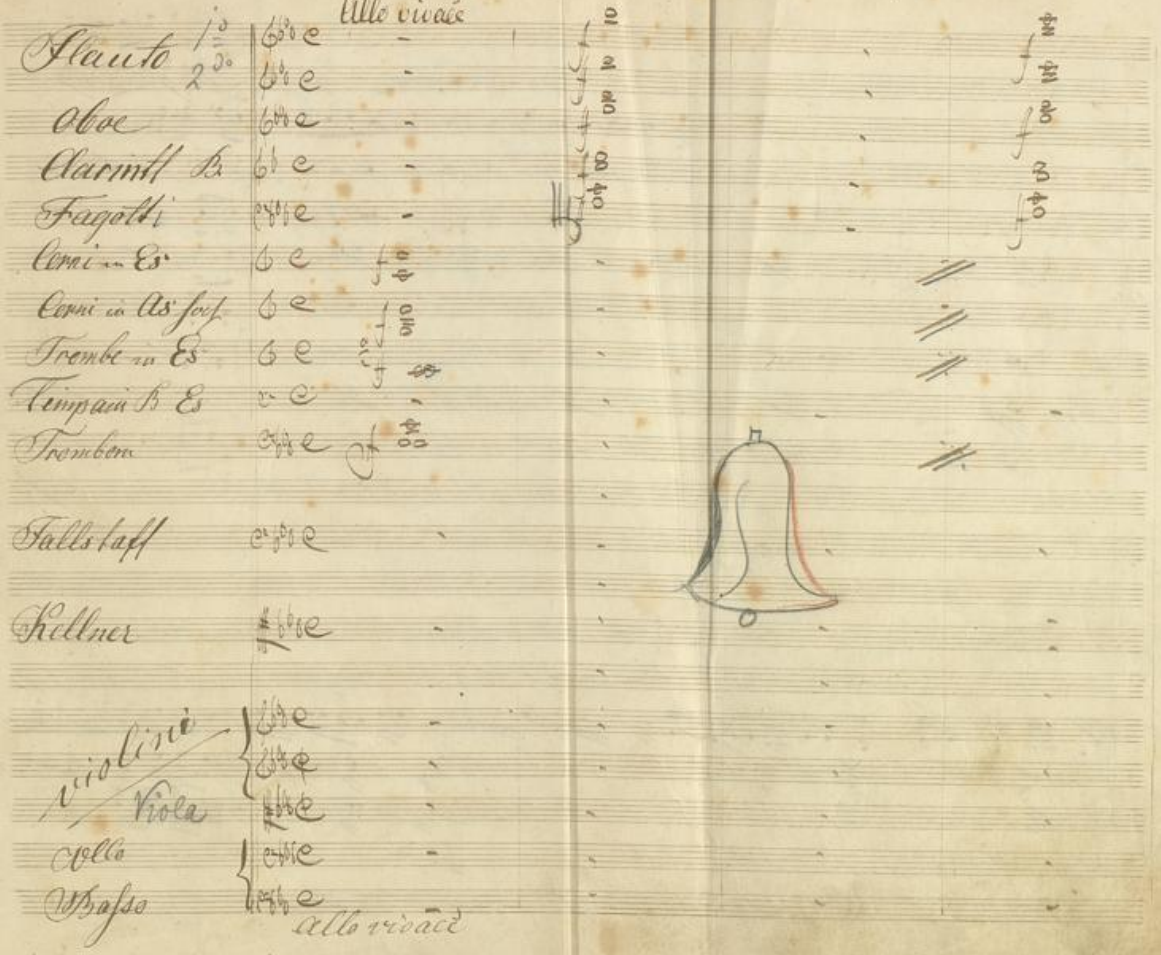 Allo vivace
Flauto 1º
2do
Oboe
Clarinetti B.
Fagotti
Corni in Es
Corni in As
Trombe in Es
Timpani B Es
Tromboni
Fallstaff
Kellner
violini
Viola
Cello
Basso
Allo vivace